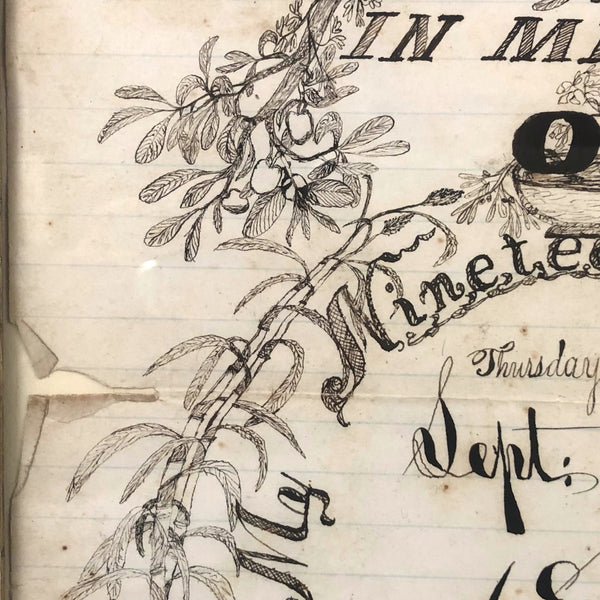 IN M
O
Ninetee
Thursday
Sept:
My